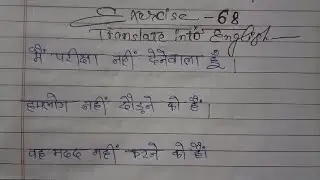 Exercise - 68
Translate into English
मैं परीक्षा नहीं देनेवाला हूँ।
हमलोग नहीं दौड़ने को हैं।
वह मदद नहीं करने को है।